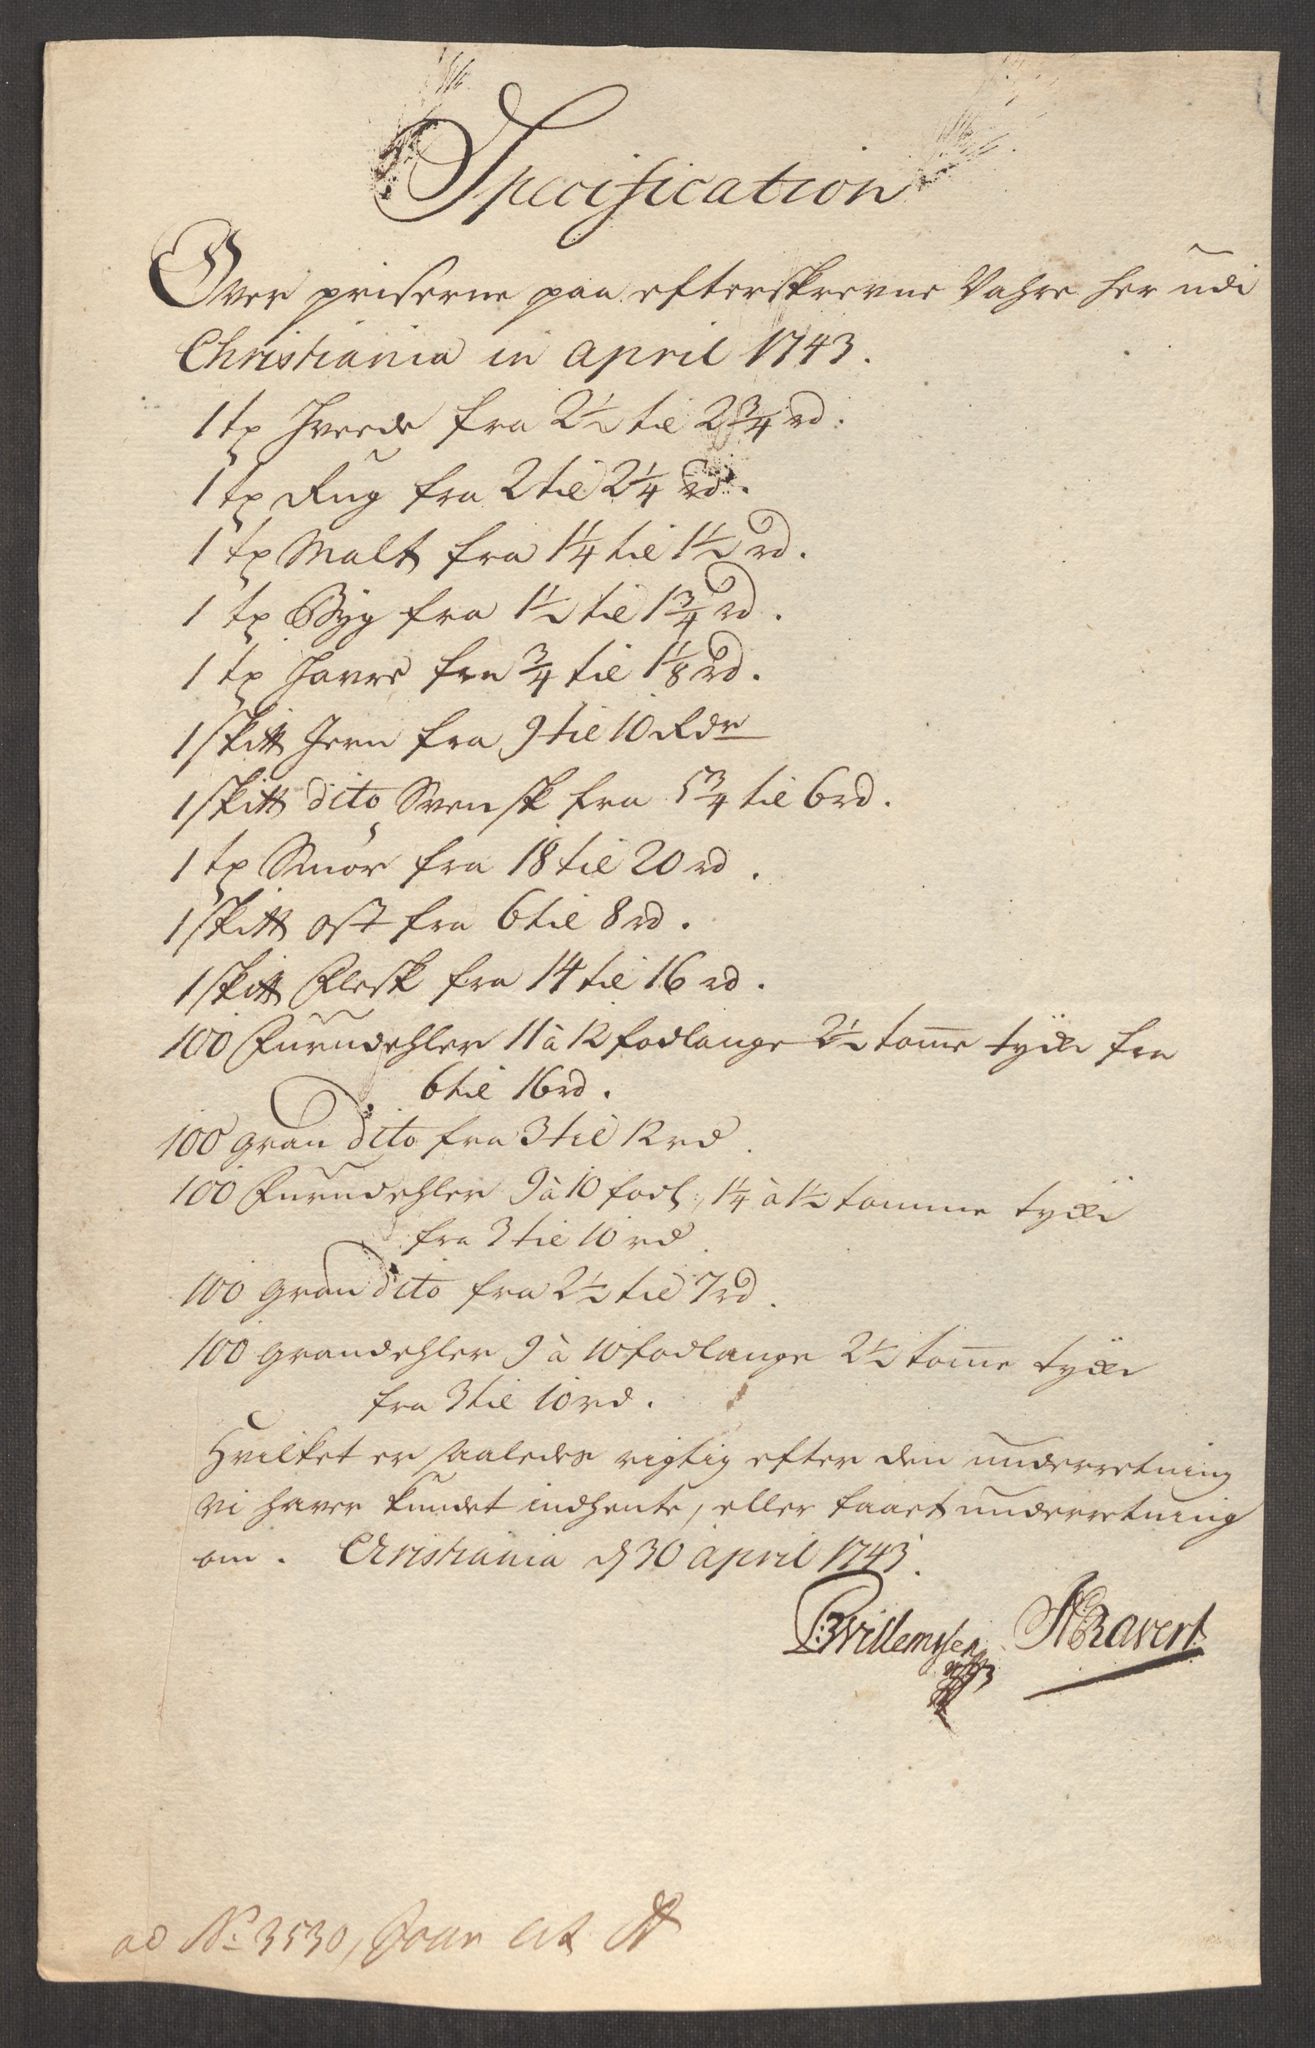 Specification
Over priserne paa efterskrevne Vahre her udi
Christiania in April 1743.
1 tr Hvede fra 2 1/2 til 2 3/4 rd.
1 tr Rug fra 2 til 2 1/4 rd.
1 tr Malt fra 1 1/4 til 1 1/2 rd.
1 tr Byg fra 1 1/2 til 1 3/4 rd.
1 tr Havre fra 3/4 til 1 1/8 rd.
1 skitt Jern fra 9 til 10 Rdr
1 skitt dito Svensk fra 5 3/4 til 6 rd.
1 tr Smör fra 18 til 20 rd.
1 skitt ost fra 6 til 8 rd.
1 skitt Flesk fra 14 til 16 rd.
100 Furudehler 11 à 12 fodlange 2 1/2 tom̅e tycke fra
6 til 16 rd.
100 gran dito fra 3 til 12 rd.
100 Furudehler 9 à 10 fodl: 1 1/4 à 1 1/2 tomme tycke
fra 3 til 10 rd.
100 gran dito fra 2 1/2 til 7 rd.
100 grandehler 9 à 10 fodlange 2 1/2 tom̅e tycke
fra 3 til 10 rd.
Hvilket er saaledes rigtig efter den underretning
vi haver kundet indhente, eller faaet underretning
om. Christiania d 30 april 1743.
Willemsen Ravert
ad No: 3530, Lit